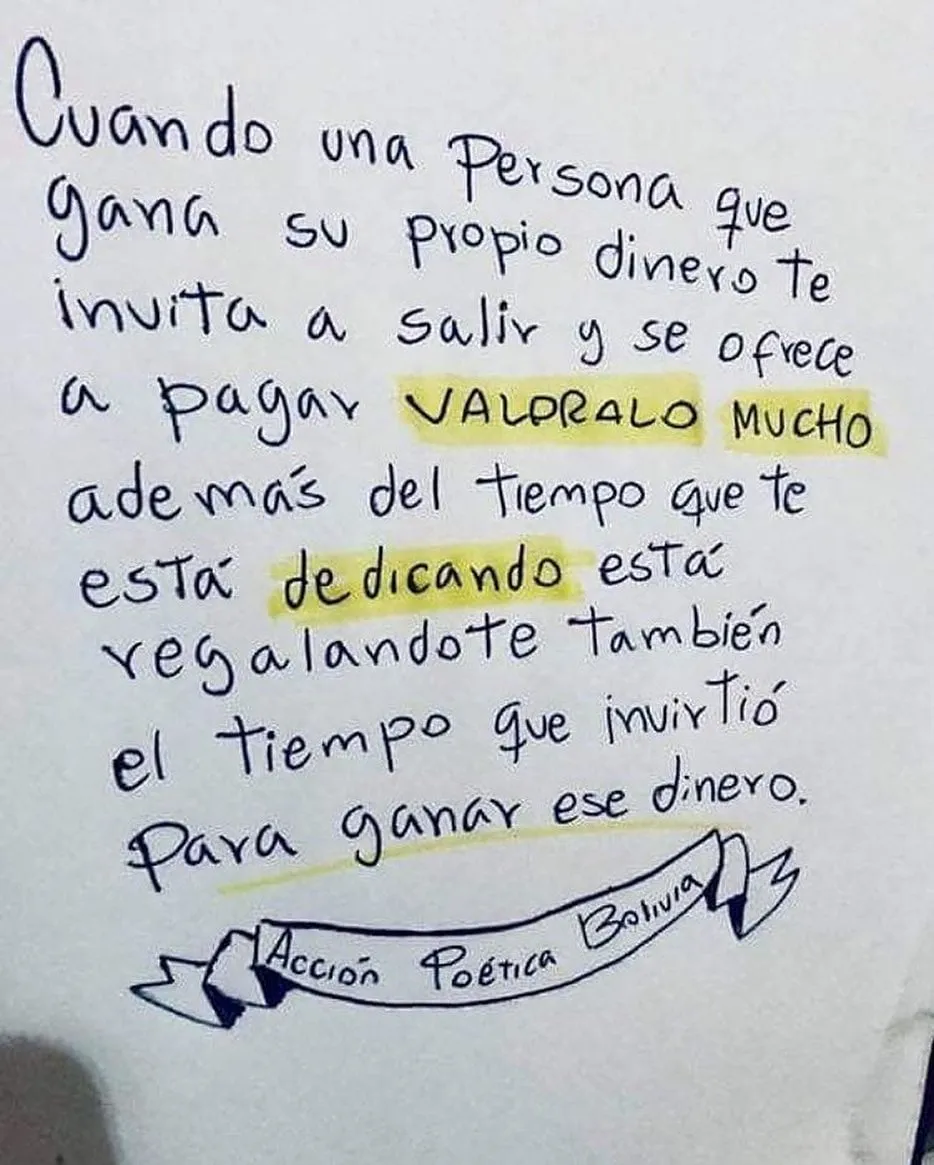 Cuando una Persona que
gana su propio dinero te
invita a salir y se ofrece
a pagar VALORALO MUCHO
además del tiempo que te
está dedicando está
regalandote también
el tiempo que invirtió
Para ganar ese dinero.
Acción Poética Bolivia